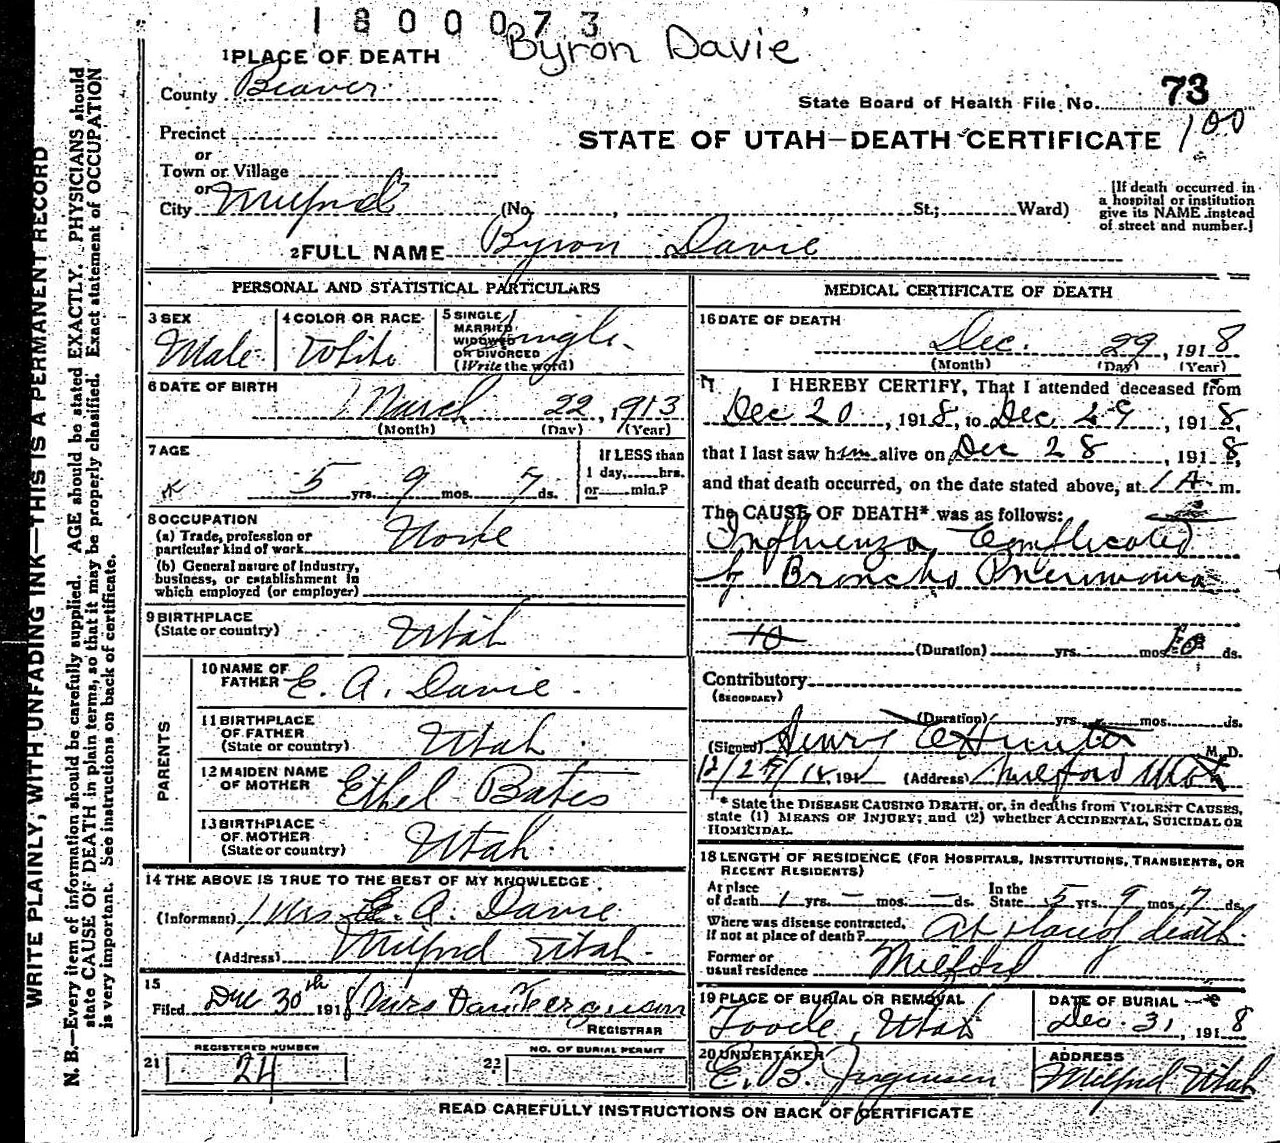 1800073
Byron Davie
1 PLACE OF DEATH
County Beaver
State Board of Health File No. 73
Precinct
STATE OF UTAH—DEATH CERTIFICATE 100
or
Town or Village
or
City Milford (No. , St.; Ward)
[If death occurred in
a hospital or institution
give its NAME instead
of street and number.]
2 FULL NAME Byron Davie
WRITE PLAINLY, WITH UNFADING INK—THIS IS A PERMANENT RECORD
N. B.—Every item of information should be carefully supplied. AGE should be stated EXACTLY. PHYSICIANS should
state CAUSE OF DEATH in plain terms, so that it may be properly classified. Exact statement of OCCUPATION
is very important. See instructions on back of certificate.
PERSONAL AND STATISTICAL PARTICULARS
3 SEX
Male
4 COLOR OR RACE
White
5 SINGLE
MARRIED
WIDOWED
OR DIVORCED
(Write the word)
Single
6 DATE OF BIRTH
March 22, 1913
(Month) (Day) (Year)
7 AGE
5 yrs. 9 mos. 7 ds.
If LESS than
1 day, hrs.
or min.?
8 OCCUPATION
(a) Trade, profession or
particular kind of work None
(b) General nature of industry,
business, or establishment in
which employed (or employer)
9 BIRTHPLACE
(State or country) Utah
PARENTS
10 NAME OF
FATHER E. A. Davie
11 BIRTHPLACE
OF FATHER
(State or country) Utah
12 MAIDEN NAME
OF MOTHER Ethel Bates
13 BIRTHPLACE
OF MOTHER
(State or country) Utah
14 THE ABOVE IS TRUE TO THE BEST OF MY KNOWLEDGE
(Informant) Mrs E. A. Davie
(Address) Milford Utah
15
Filed Dec 30th 1918 Mrs Ferguson
REGISTRAR
21 REGISTERED NUMBER
24
22 NO. OF BURIAL PERMIT
MEDICAL CERTIFICATE OF DEATH
16 DATE OF DEATH
Dec. 29, 1918
(Month) (Day) (Year)
17 I HEREBY CERTIFY, That I attended deceased from
Dec 20, 1918, to Dec 29, 1918,
that I last saw him alive on Dec 28, 1918,
and that death occurred, on the date stated above, at 1 A. m.
The CAUSE OF DEATH* was as follows:
Influenza Complicated
by Broncho Pneumonia
10 (Duration) yrs. mos. 10 ds.
Contributory
(SECONDARY)
(Duration) yrs. mos. ds.
(Signed) Henry C Hunter M. D.
12/29/18 191 (Address) Milford Utah
* State the DISEASE CAUSING DEATH, or, in deaths from VIOLENT CAUSES,
state (1) MEANS OF INJURY; and (2) whether ACCIDENTAL, SUICIDAL OR
HOMICIDAL.
18 LENGTH OF RESIDENCE (FOR HOSPITALS, INSTITUTIONS, TRANSIENTS, OR
RECENT RESIDENTS)
At place
of death 1 yrs. — mos. — ds. In the
State 5 yrs. 9 mos. 7 ds.
Where was disease contracted,
if not at place of death? At place of death
Former or
usual residence Milford
19 PLACE OF BURIAL OR REMOVAL
Tooele, Utah
DATE OF BURIAL
Dec. 31, 1918
20 UNDERTAKER
E. B. Jorgensen
ADDRESS
Milford Utah
READ CAREFULLY INSTRUCTIONS ON BACK OF CERTIFICATE